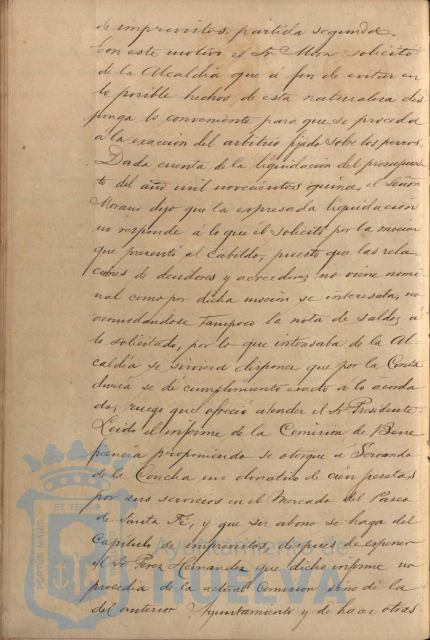 de imprevistos, partida segunda.
Con este motivo el Sr. Mora solicitó
de la Alcaldía que á fin de evitar en
lo posible hechos de esta naturaleza dis
ponga lo conveniente para que se proceda
a la exacción del arbitrio fijado sobre los perros.
Dada cuenta de la liquidación del presupues
to del año mil novecientos quince, el Señor
Morano dijo que la expresada liquidación
no responde á lo que él solicitó por la moción
que presentó al Cabildo, puesto que las rela
ciones de deudores y acreedores no viene nomi
nal como por dicha moción se interesaba, no
acomodándose tampoco la nota de saldos á
lo solicitado, por lo que interesaba de la Al
caldía se sirviera disponer que por la Conta
duría se dé cumplimiento exacto a lo acorda
do, ruego que ofreció atender el Sr. Presidente.
Leido el informe de la Comisión de Bene
ficencia proponiendo se otorgue á Servando
de la Concha un donativo de cien pesetas
por sus servicios en el Mercado del Paseo
de Santa Fé, y que su abono se haga del
Capítulo de imprevistos, después de exponer
el Sr. Perez Hernandez que dicho informe no
procedía de la actual Comisión sino de la
del anterior Ayuntamiento y de hacer otras
PORTUS MARIS ET TERRAE
Ayuntamiento de
HUELVA